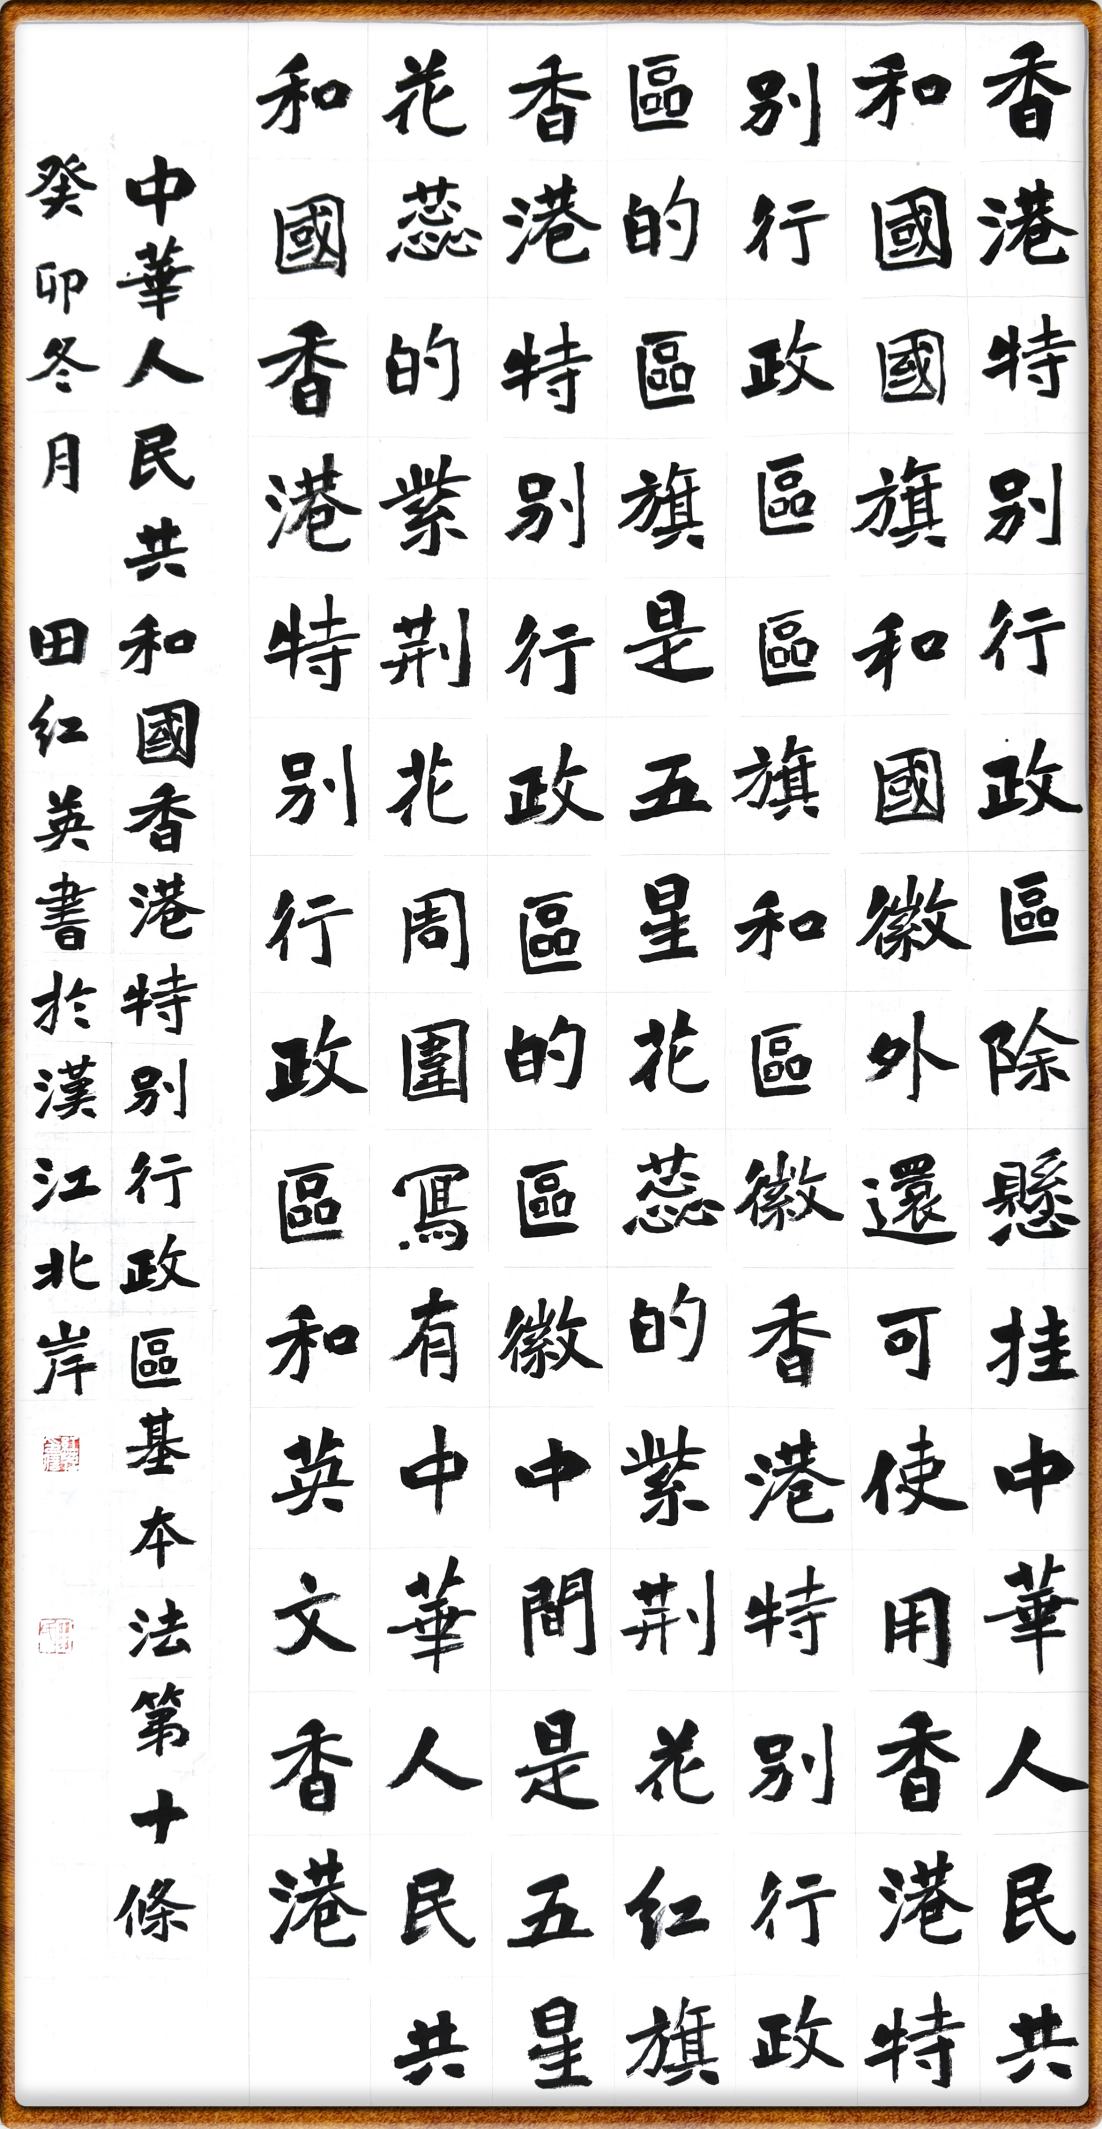 香港特别行政區除懸挂中華人民共
和國國旗和國徽外還可使用香港特
别行政區區旗和區徽香港特别行政
區的區旗是五星花蕊的紫荆花红旗
香港特别行政區的區徽中間是五星
花蕊的紫荆花周圍寫有中華人民共
和國香港特别行政區和英文香港
中華人民共和國香港特别行政區基本法第十條
癸卯冬月 田红英書於漢江北岸